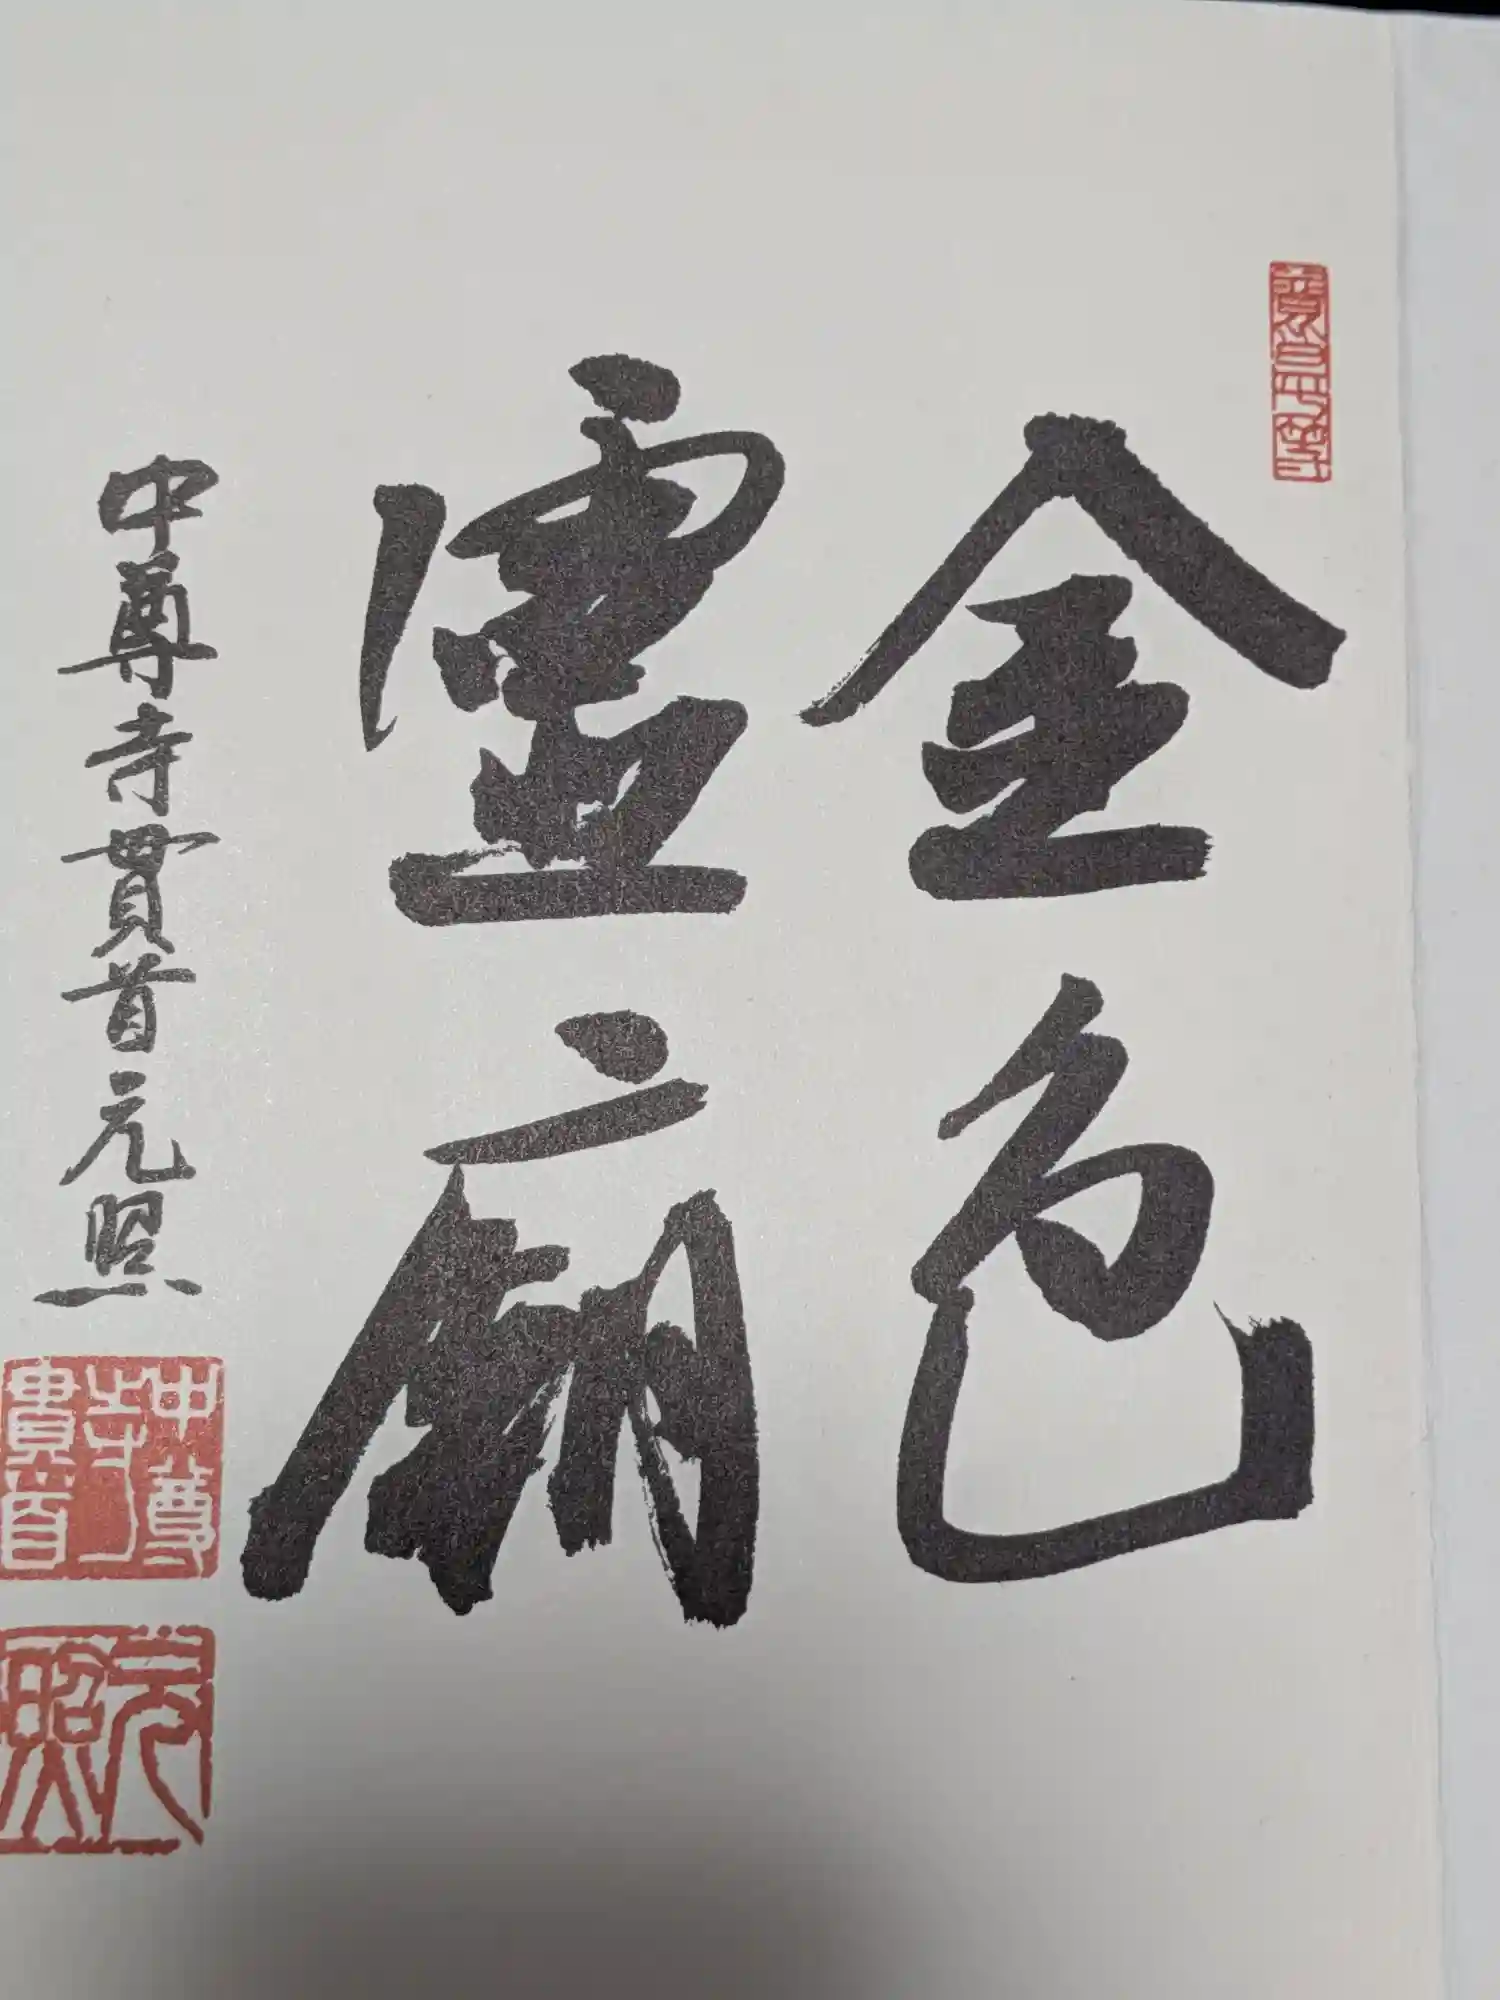 金色
靈廟
中尊寺貫首元照
中尊
寺
貫首
元
照